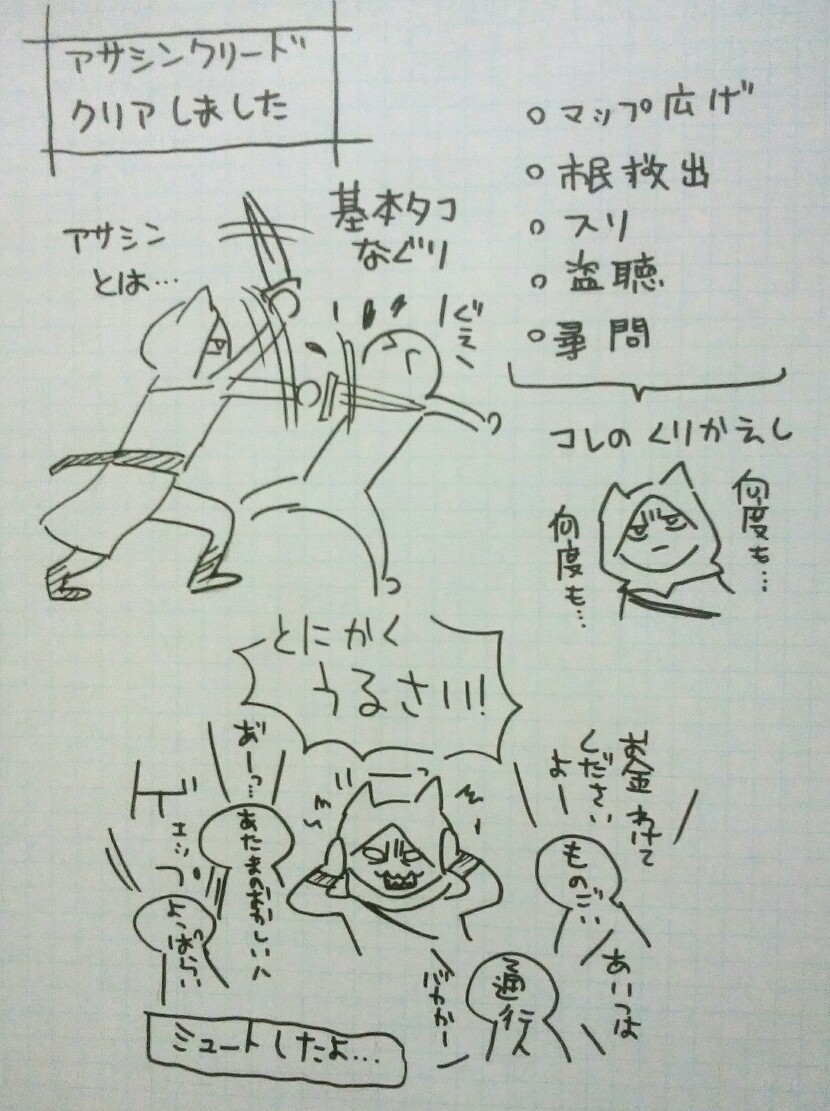 アサシンクリード
クリアしました
アサシン
とは…
基本タコ
なぐり
ぐえ
○ マップ広げ
○ 市民救出
○ スリ
○ 盗聴
○ 尋問
コレのくりかえし
何度も…
何度も…
とにかく
うるさい!
あ゛ーっ…
あたまのおかしい人
ゲェップ
よっぱらい
お金わけて
くださいよー
ものごい
あいつは
バカかー
通行人
ミュートしたよ…